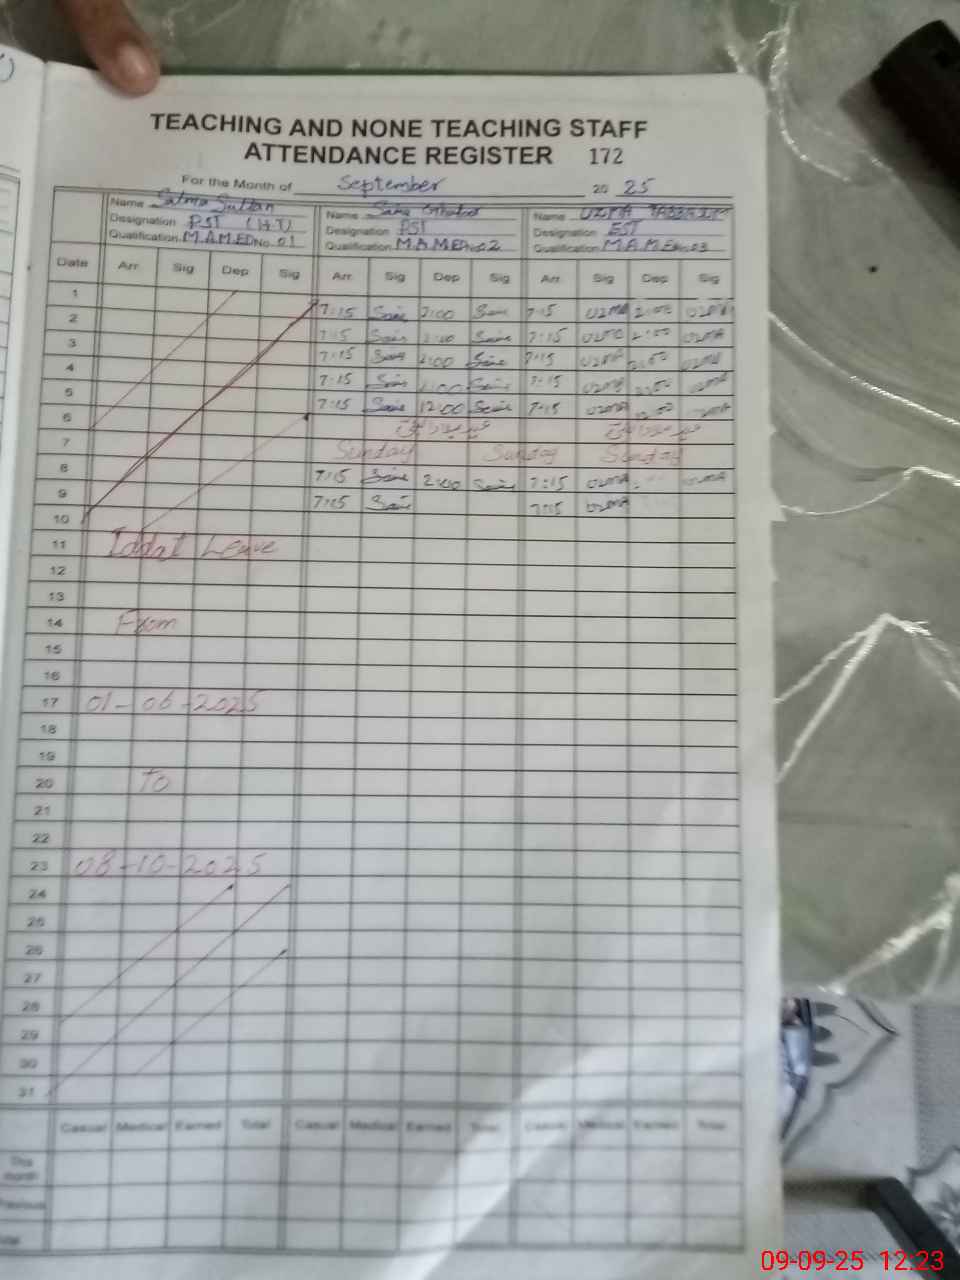 TEACHING AND NONE TEACHING STAFF
ATTENDANCE REGISTER 172
For the Month of September 20 25
Name Salma Sultan Name Name UZMA
Designation PST (H.T) Designation PST Designation EST
Qualification M.A.M.ED No. 01 Qualification M.A.M.ED No. 02 Qualification M.A.M.ED No. 03
Date Arr. Sig Dep Sig Arr. Sig Dep Sig Arr. Sig Dep Sig
1 7:15 2:00 7:15 UZMA 2:00 UZMA
2 7:15 2:00 7:15 2:00 UZMA
3 7:15 2:00 7:15 UZMA 2:00 UZMA
4 7:15 2:00 7:15 UZMA 2:00 UZMA
5 7:15 12:00 7:15 UZMA 12:00 UZMA
6
7 Sunday Sunday Sunday
8 7:15 2:00 7:15 UZMA UZMA
9 7:15 7:15 UZMA
10
11 Iddat Leave
12
13
14 From
15
16
17 01-06-2025
18
19
20 To
21
22
23 08-10-2025
24
25
26
27
28
29
30
31
Casual Medical Earned Total Casual Medical Earned Total Casual Medical Earned Total
This month
Previous
Total
09-09-25 12:23